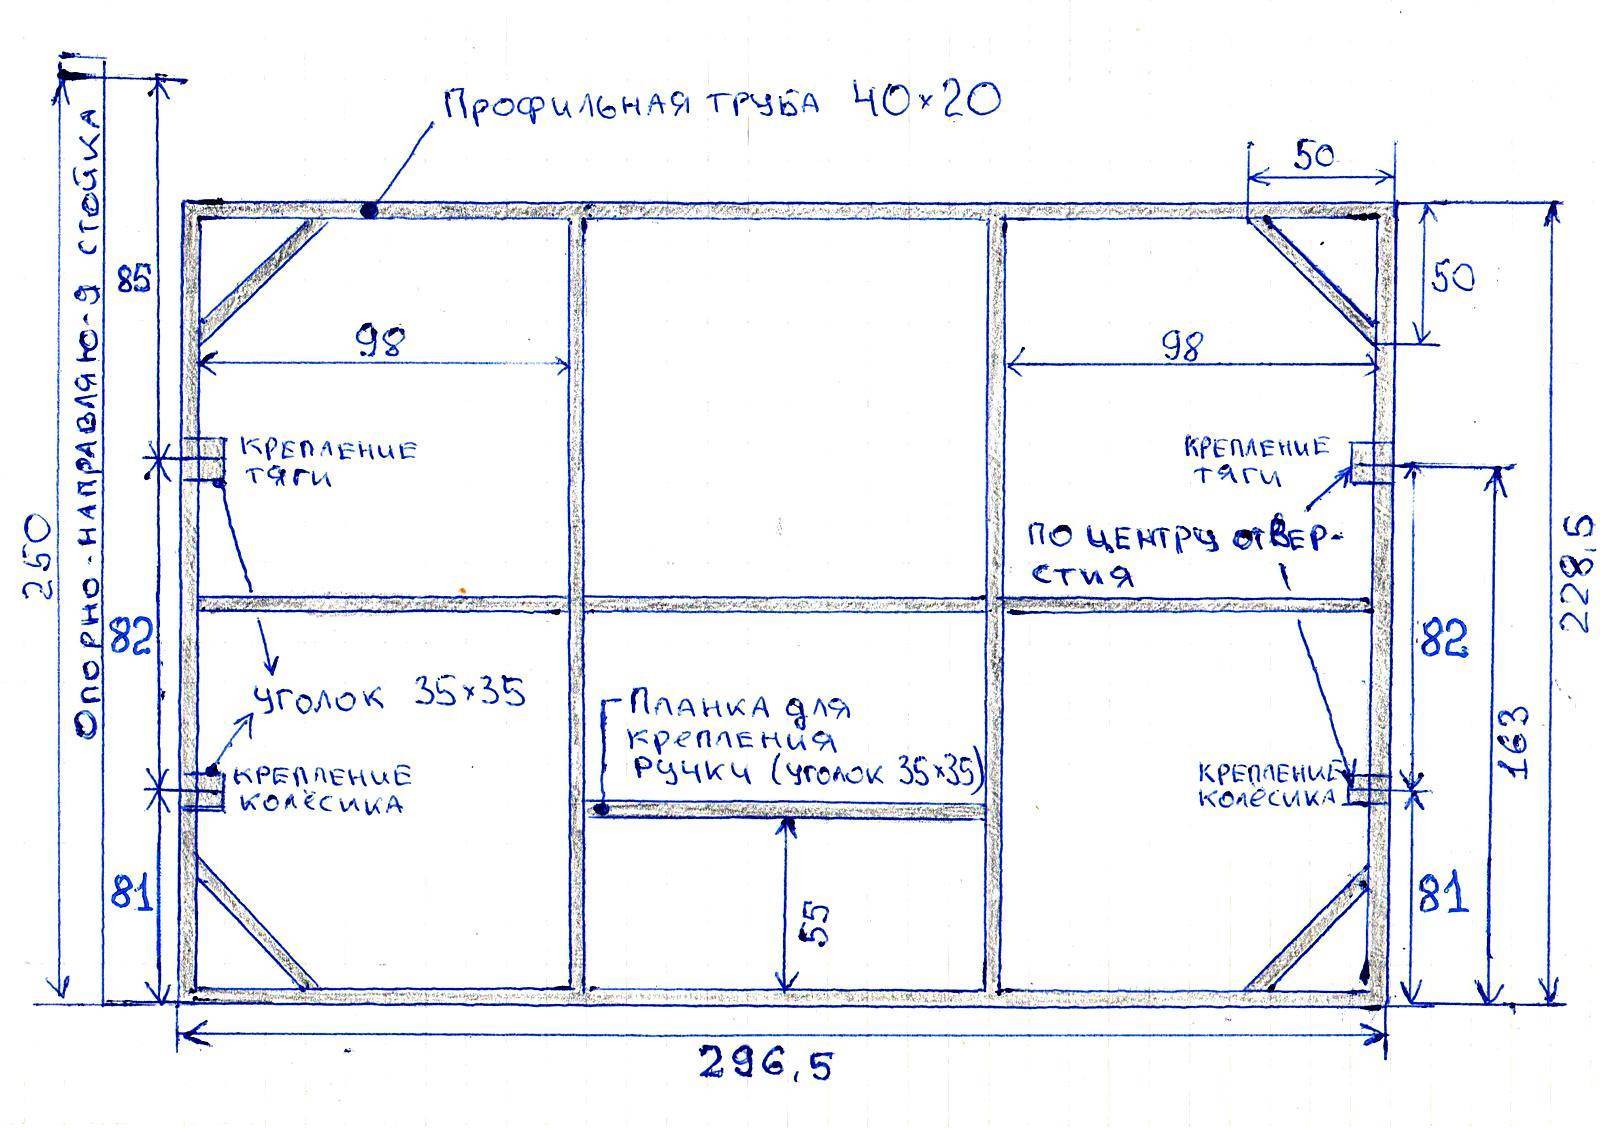 Профильная труба 40×20
50
50
Опорно-направляю-я стойка
85
98
98
крепление
тяги
крепление
тяги
250
по центру отвер-
стия
228,5
82
82
уголок 35×35
Планка для
крепления
ручки (уголок 35×35)
163
крепление
колёсика
крепление
колёсика
81
81
55
296,5